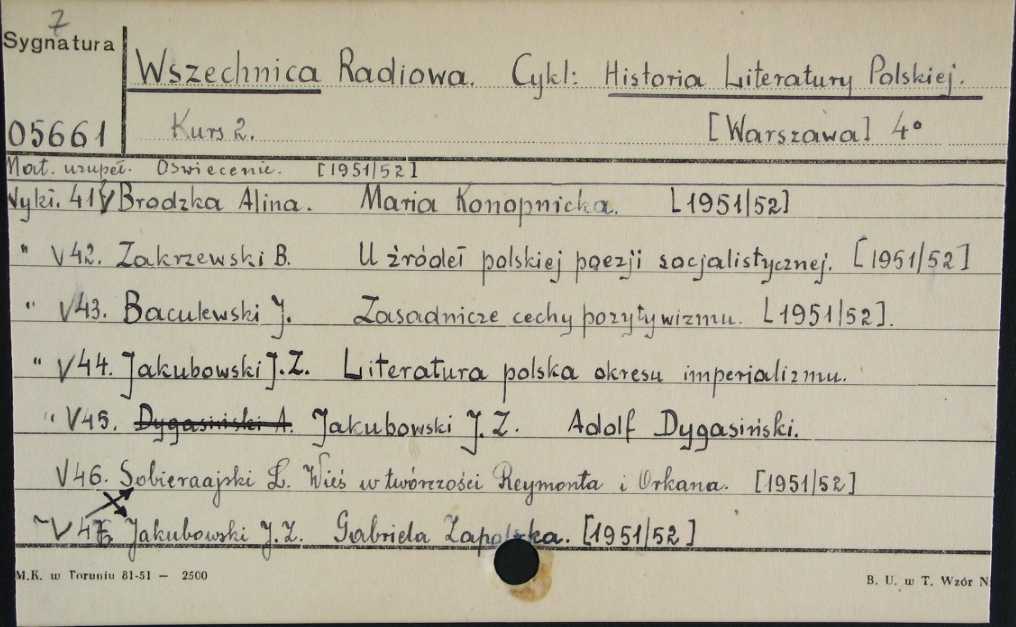 7
Sygnatura
Wszechnica Radiowa. Cykl: Historia Literatury Polskiej.
05661 Kurs 2. [Warszawa] 4°
Mat. uzupeł. Oświecenie. [1951/52]
Wykł. 41 V Brodzka Alina. Maria Konopnicka. [1951/52]
" V 42. Zakrzewski B. U źródeł polskiej poezji socjalistycznej. [1951/52]
" V 43. Baculewski J. Zasadnicze cechy pozytywizmu. [1951/52].
" V 44. Jakubowski J.Z. Literatura polska okresu imperializmu.
" V 45. Dygasiński A. Jakubowski J.Z. Adolf Dygasiński.
V 46. Sobieraajski Ł. Wieś w twórczości Reymonta i Orkana. [1951/52]
" V 47 Jakubowski J.Z. Gabriela Zapolska. [1951/52]
M.K. w Toruniu 81-51 — 2500 B. U. w T. Wzór N